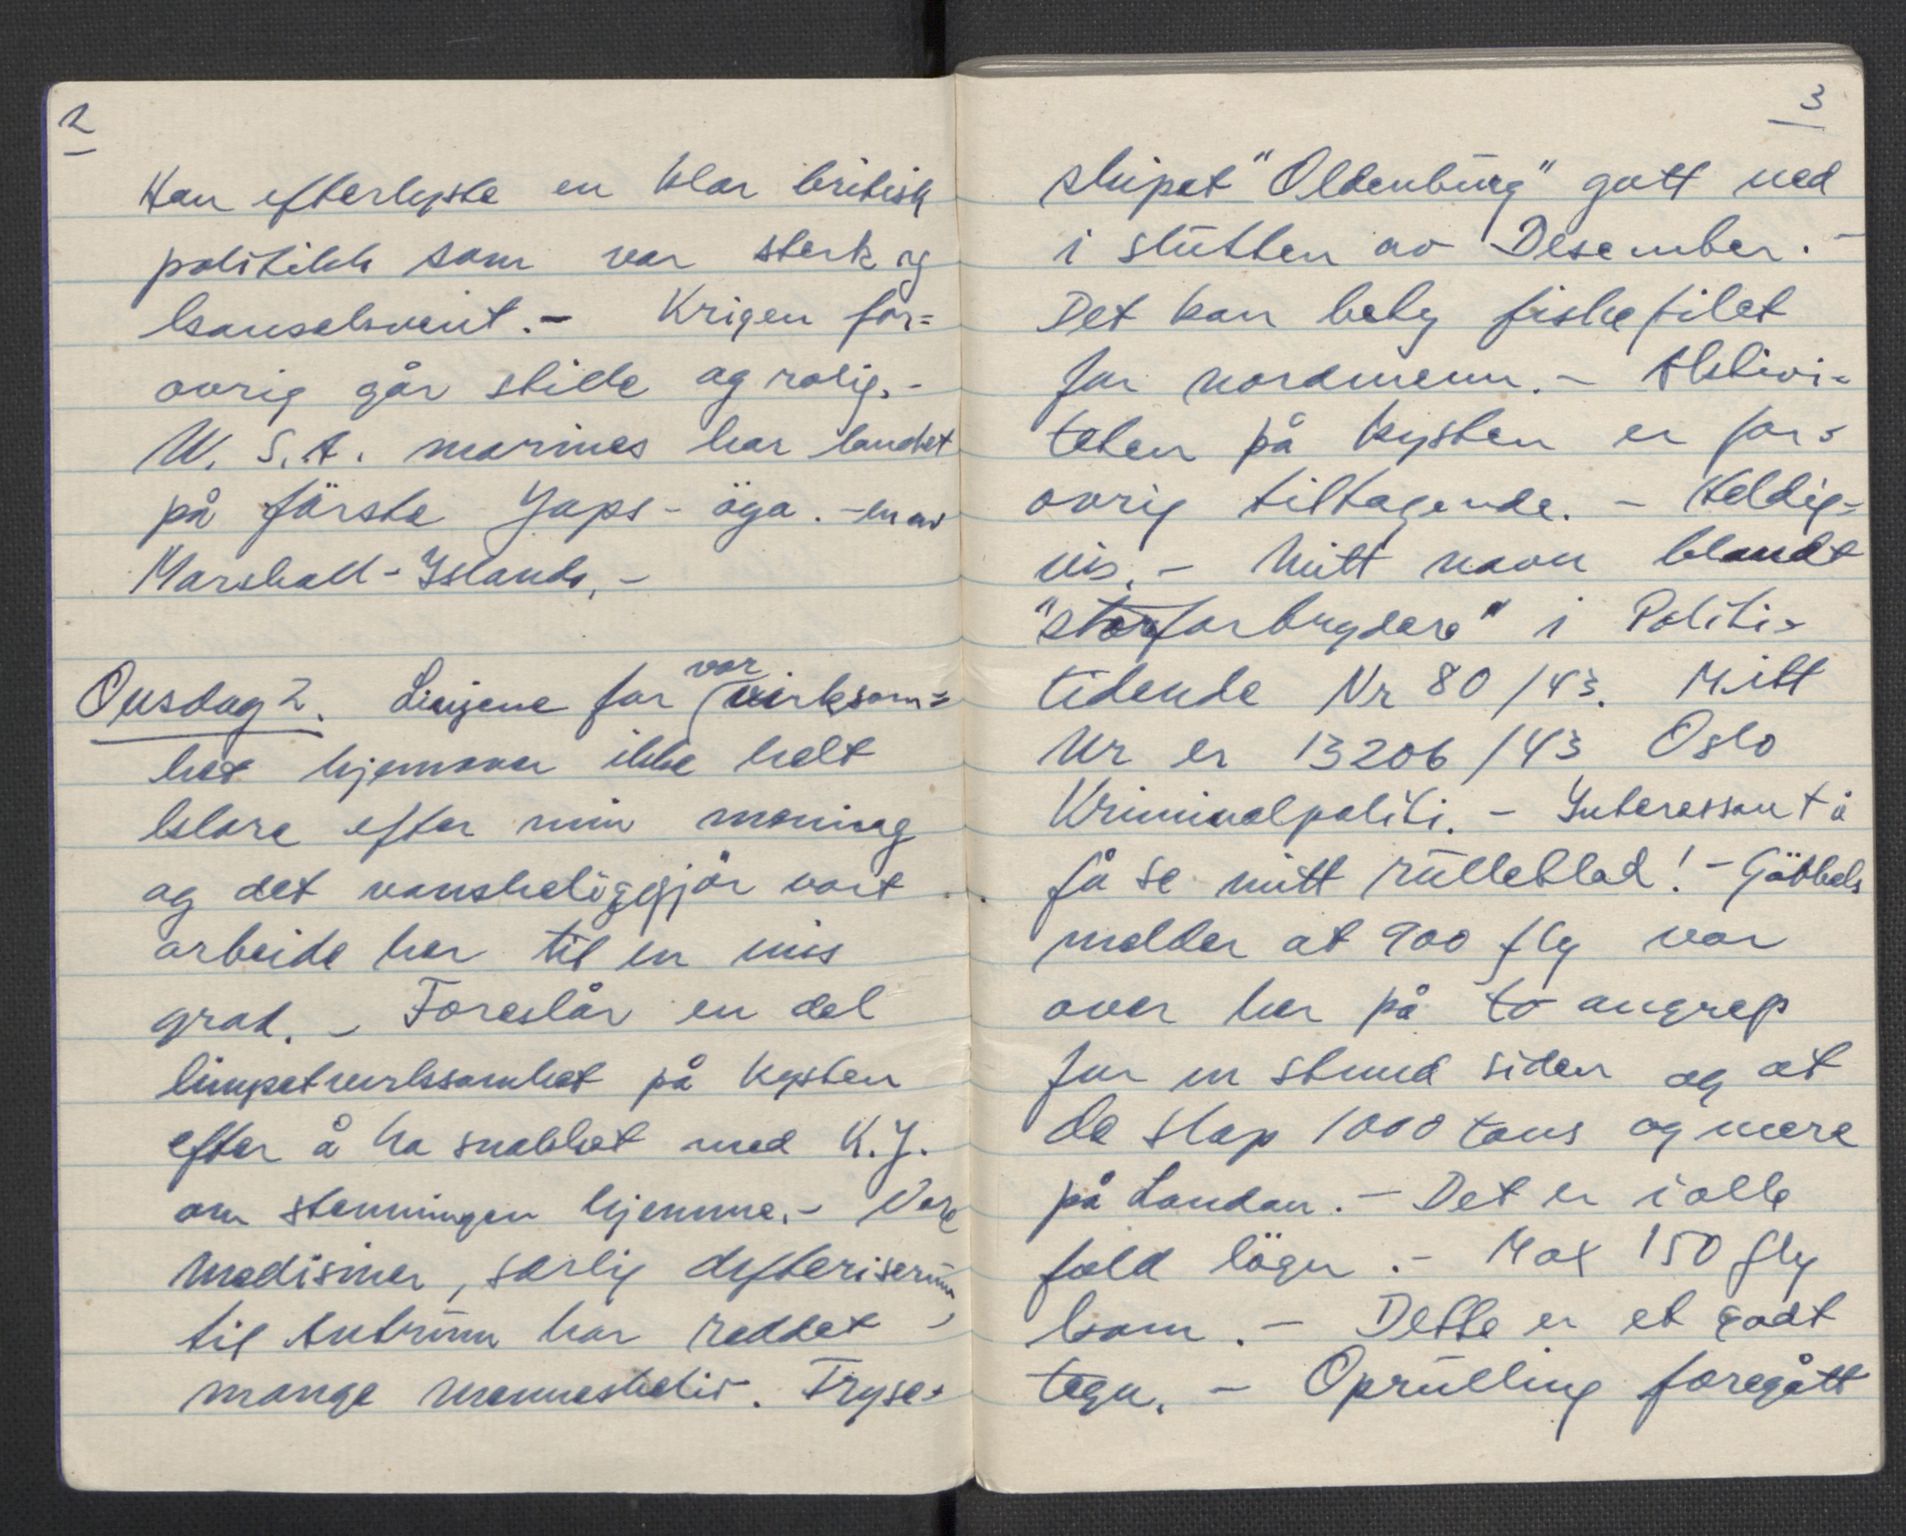 2
Han efterlyste en klar britisk
politikk som var sterk og
konsekvent. - Krigen for=
øvrig går stille og rolig. -
U.S.A. marines har landet
på förste Japs-öya. - en av
Marshall-Islands. -
Onsdag 2. Linjene for vår virksom=
het hjemover ikke helt
klare efter min mening
og det vanskeliggjör vort
arbeide her til en viss
grad. - Foreslår en del
limpetvirksomhet på kysten
efter å ha snakket med K.J.
om stemningen hjemme. - Våre
medisiner, særlig difteriserum
til Antrum har reddet
mange menneskeliv. Fryse=
3
skipet "Oldenburg" gått ned
i slutten av Desember. -
Det kan bety fiskefilet
for nordmenn. - Aktivi=
teten på kysten er for=
øvrig tiltagende. - Heldig=
vis. - Mitt navn blandt
"storforbrydere" i Politi=
tidende Nr 80/43. Mitt
Nr er 13206/43 Oslo
Kriminalpoliti. - Interessant å
få se mitt rulleblad! - Göbbels
melder at 900 fly var
over her på to angrep
for en stund siden og at
de slap 1000 tons og mere
på London. - Det er i alle
fald lögn. - Max 150 fly
kom. - Dette er et godt
tegn. - Oprulling foregått